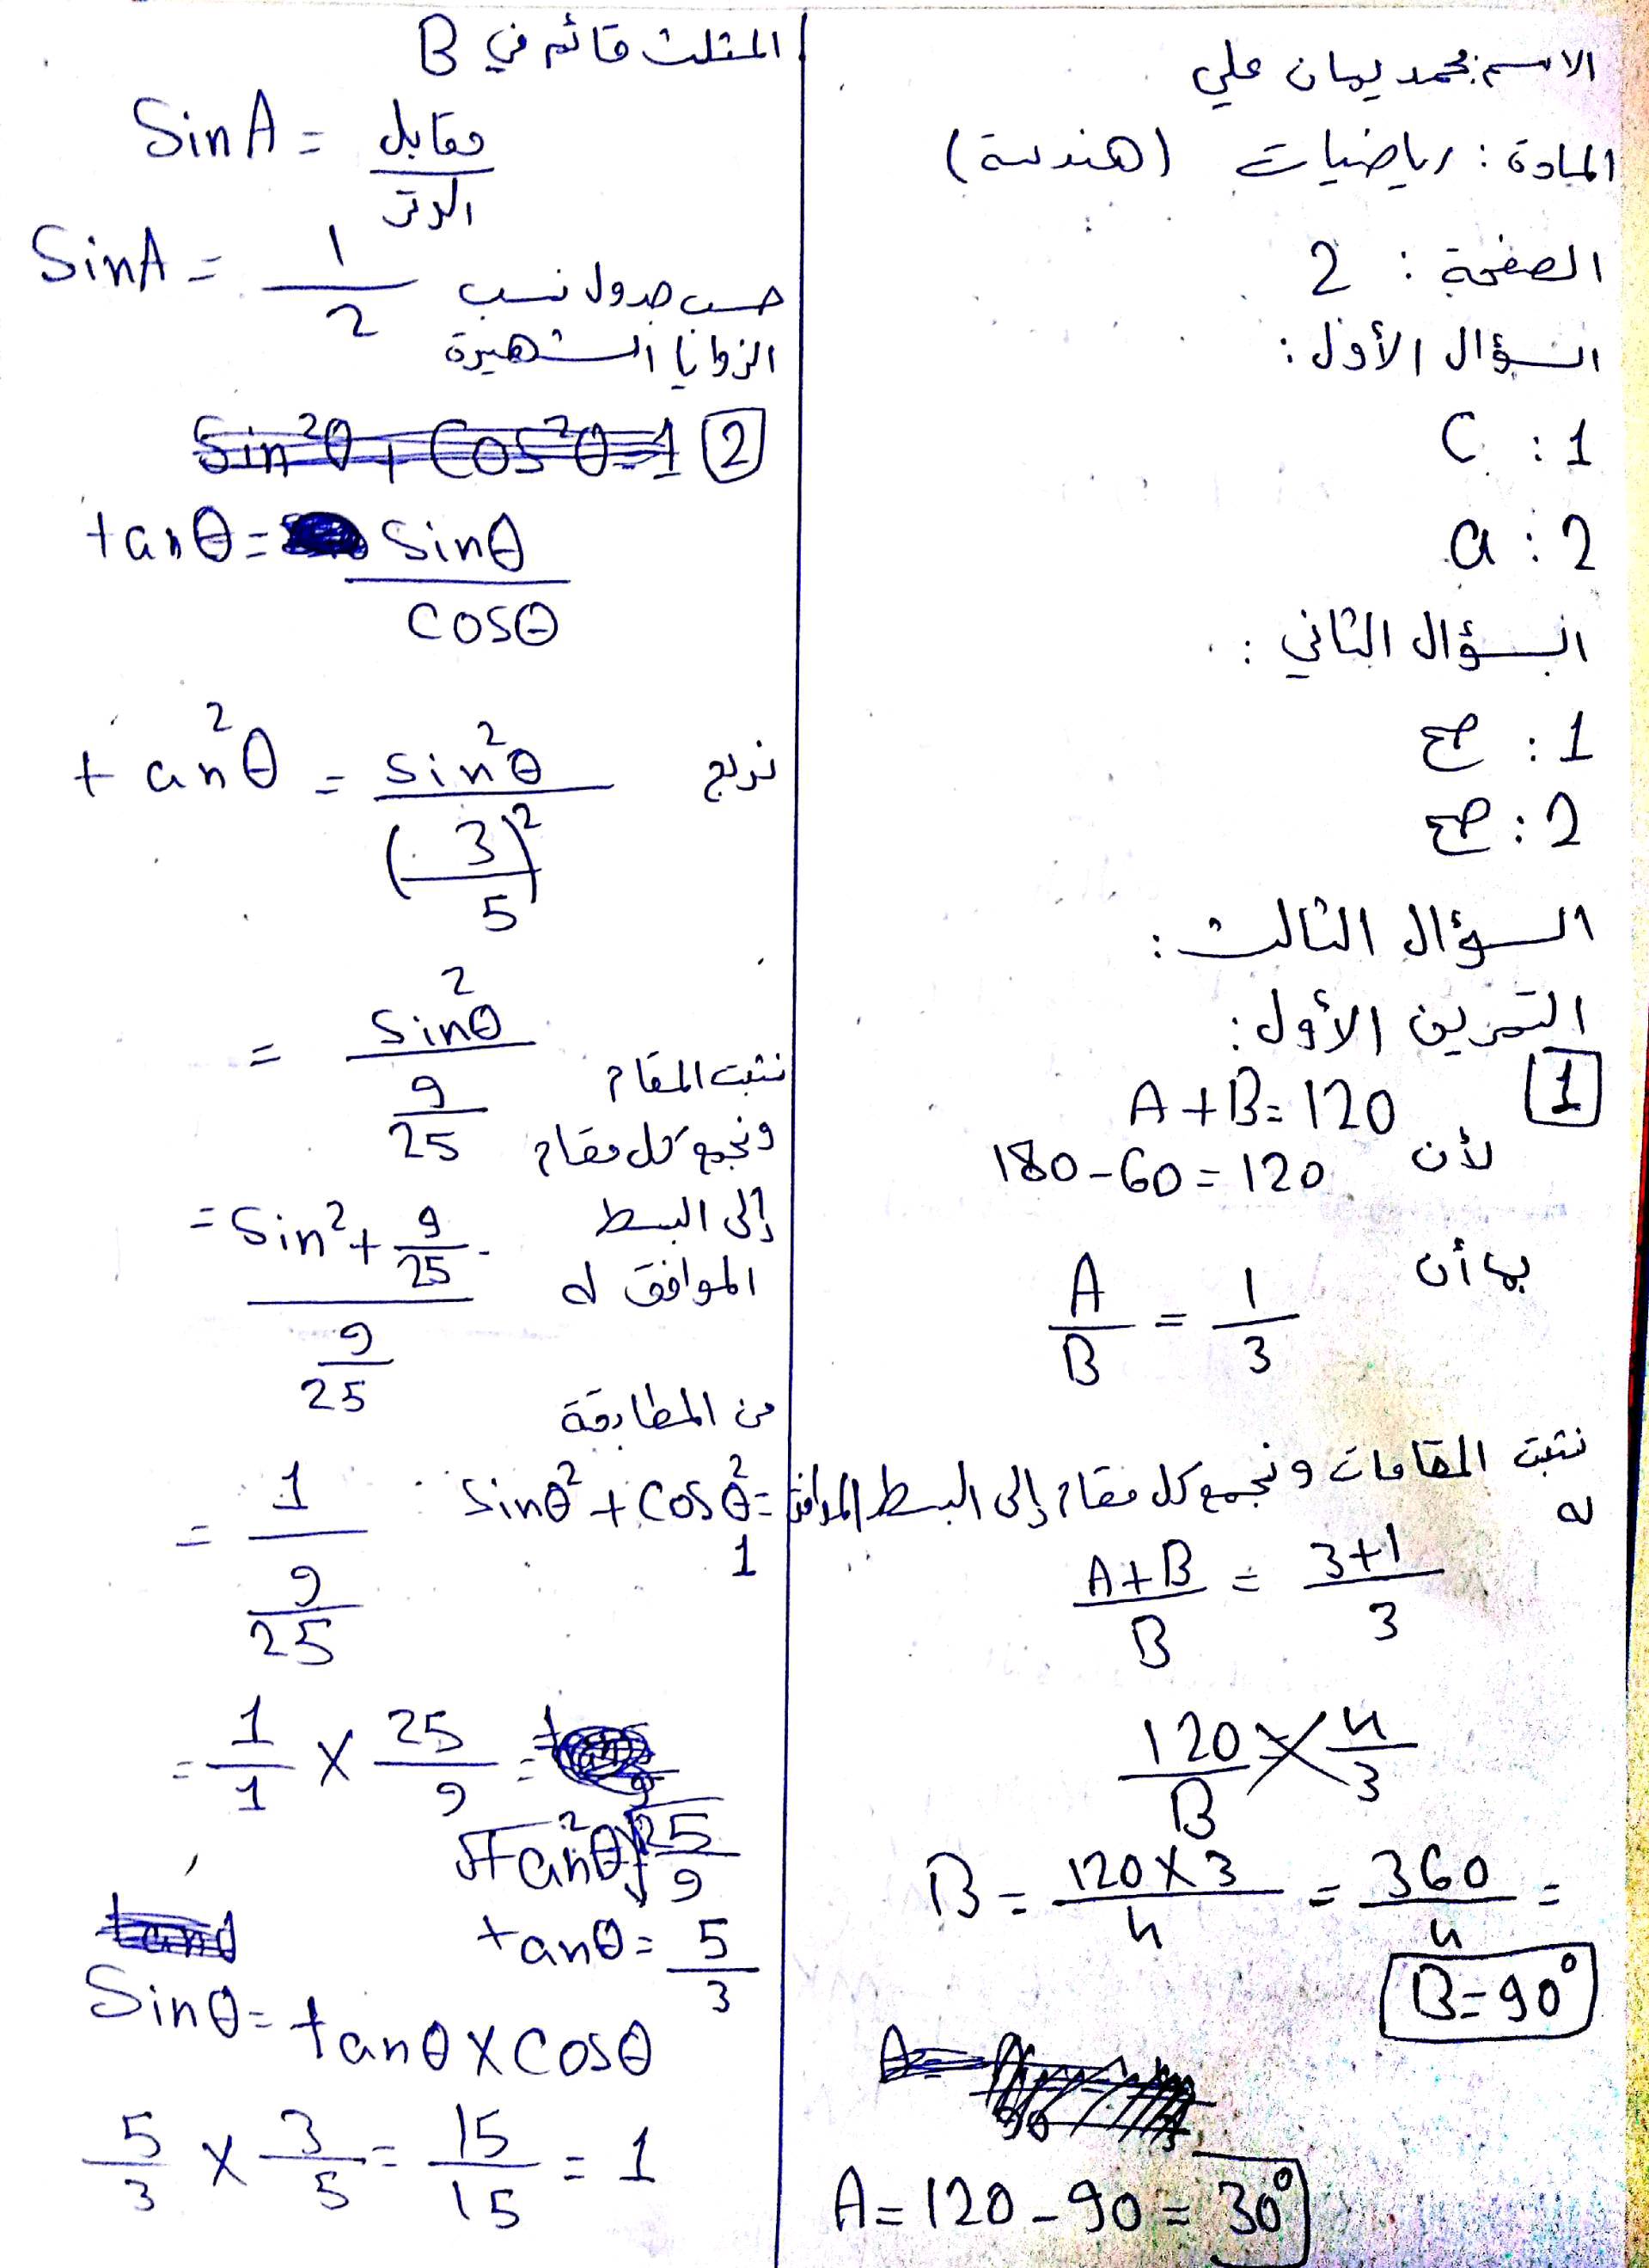 الاسم: محمد يمان علي
المادة: رياضيات (هندسة)
الصفحة: 2
السؤال الأول:
1: C
2: a
السؤال الثاني:
1: صح
2: صح
السؤال الثالث:
التمرين الأول:
1 A+B=120
لأن 180-60=120
بما أن A/B = 1/3
نثبت المقامات ونجمع كل مقام إلى البسط الموافق
له
A+B/B = 3+1/3
120/B = 4/3
B = 120×3/4 = 360/4 =
B=90°
A=120-90=30°
المثلث قائم في B
Sin A = مقابل/الوتر
SinA = 1/2 حسب جدول نسب
الزوايا الشهيرة
2 Sin²θ + Cos²θ=1
tanθ= Sinθ/Cosθ
نربع tan²θ = Sin²θ/(3/5)²
= Sin²θ/(9/25) نثبت المقام
ونجمع كل مقام
إلى البسط
الموافق له
= Sin²+9/25 / 9/25
من المطابقة
Sinθ²+Cosθ²=
1
= 1/(9/25)
= 1/1 × 25/9 =
√tan²θ √25/9
tanθ= 5/3
Sinθ= tanθ×Cosθ
5/3 × 3/5 = 15/15 = 1